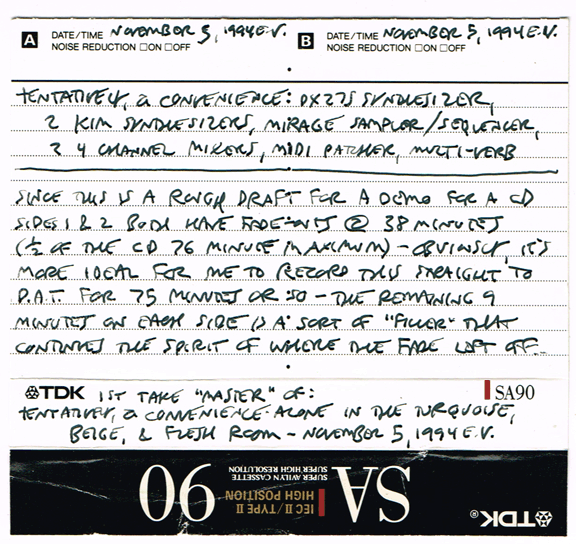 A DATE/TIME NOVEMBER 5, 1994 E.V. B DATE/TIME NOVEMBER 5, 1994 E.V.
NOISE REDUCTION □ON □OFF NOISE REDUCTION □ON □OFF
TENTATIVELY, a CONVENIENCE: DX27S SYNTHESIZER,
2 KIM SYNTHESIZERS, MIRAGE SAMPLER/SEQUENCER,
4 CHANNEL MIXERS, MIDI PATCHER, MULTI-VERB
SINCE THIS IS A ROUGH DRAFT FOR A DEMO FOR A CD
SIDES 1 & 2 BOTH HAVE FADE-OUTS @ 38 MINUTES
(½ OF THE CD 76 MINUTE MAXIMUM) - OBVIOUSLY, IT'S
MORE IDEAL FOR ME TO RECORD THIS STRAIGHT TO
D.A.T. FOR 75 MINUTES OR SO - THE REMAINING 9
MINUTES ON EACH SIDE IS A SORT OF "FILLER" THAT
CONTINUES THE SPIRIT OF WHERE THE FADE LEFT OFF..
TDK 1ST TAKE "MASTER" OF: SA90
TENTATIVELY, a CONVENIENCE ALONE IN THE TURQUOISE,
BEIGE, & FLESH ROOM - NOVEMBER 5, 1994 E.V.
TDK®
SA
IEC II / TYPE II
HIGH POSITION
SUPER AVILYN CASSETTE
SUPER HIGH RESOLUTION
90